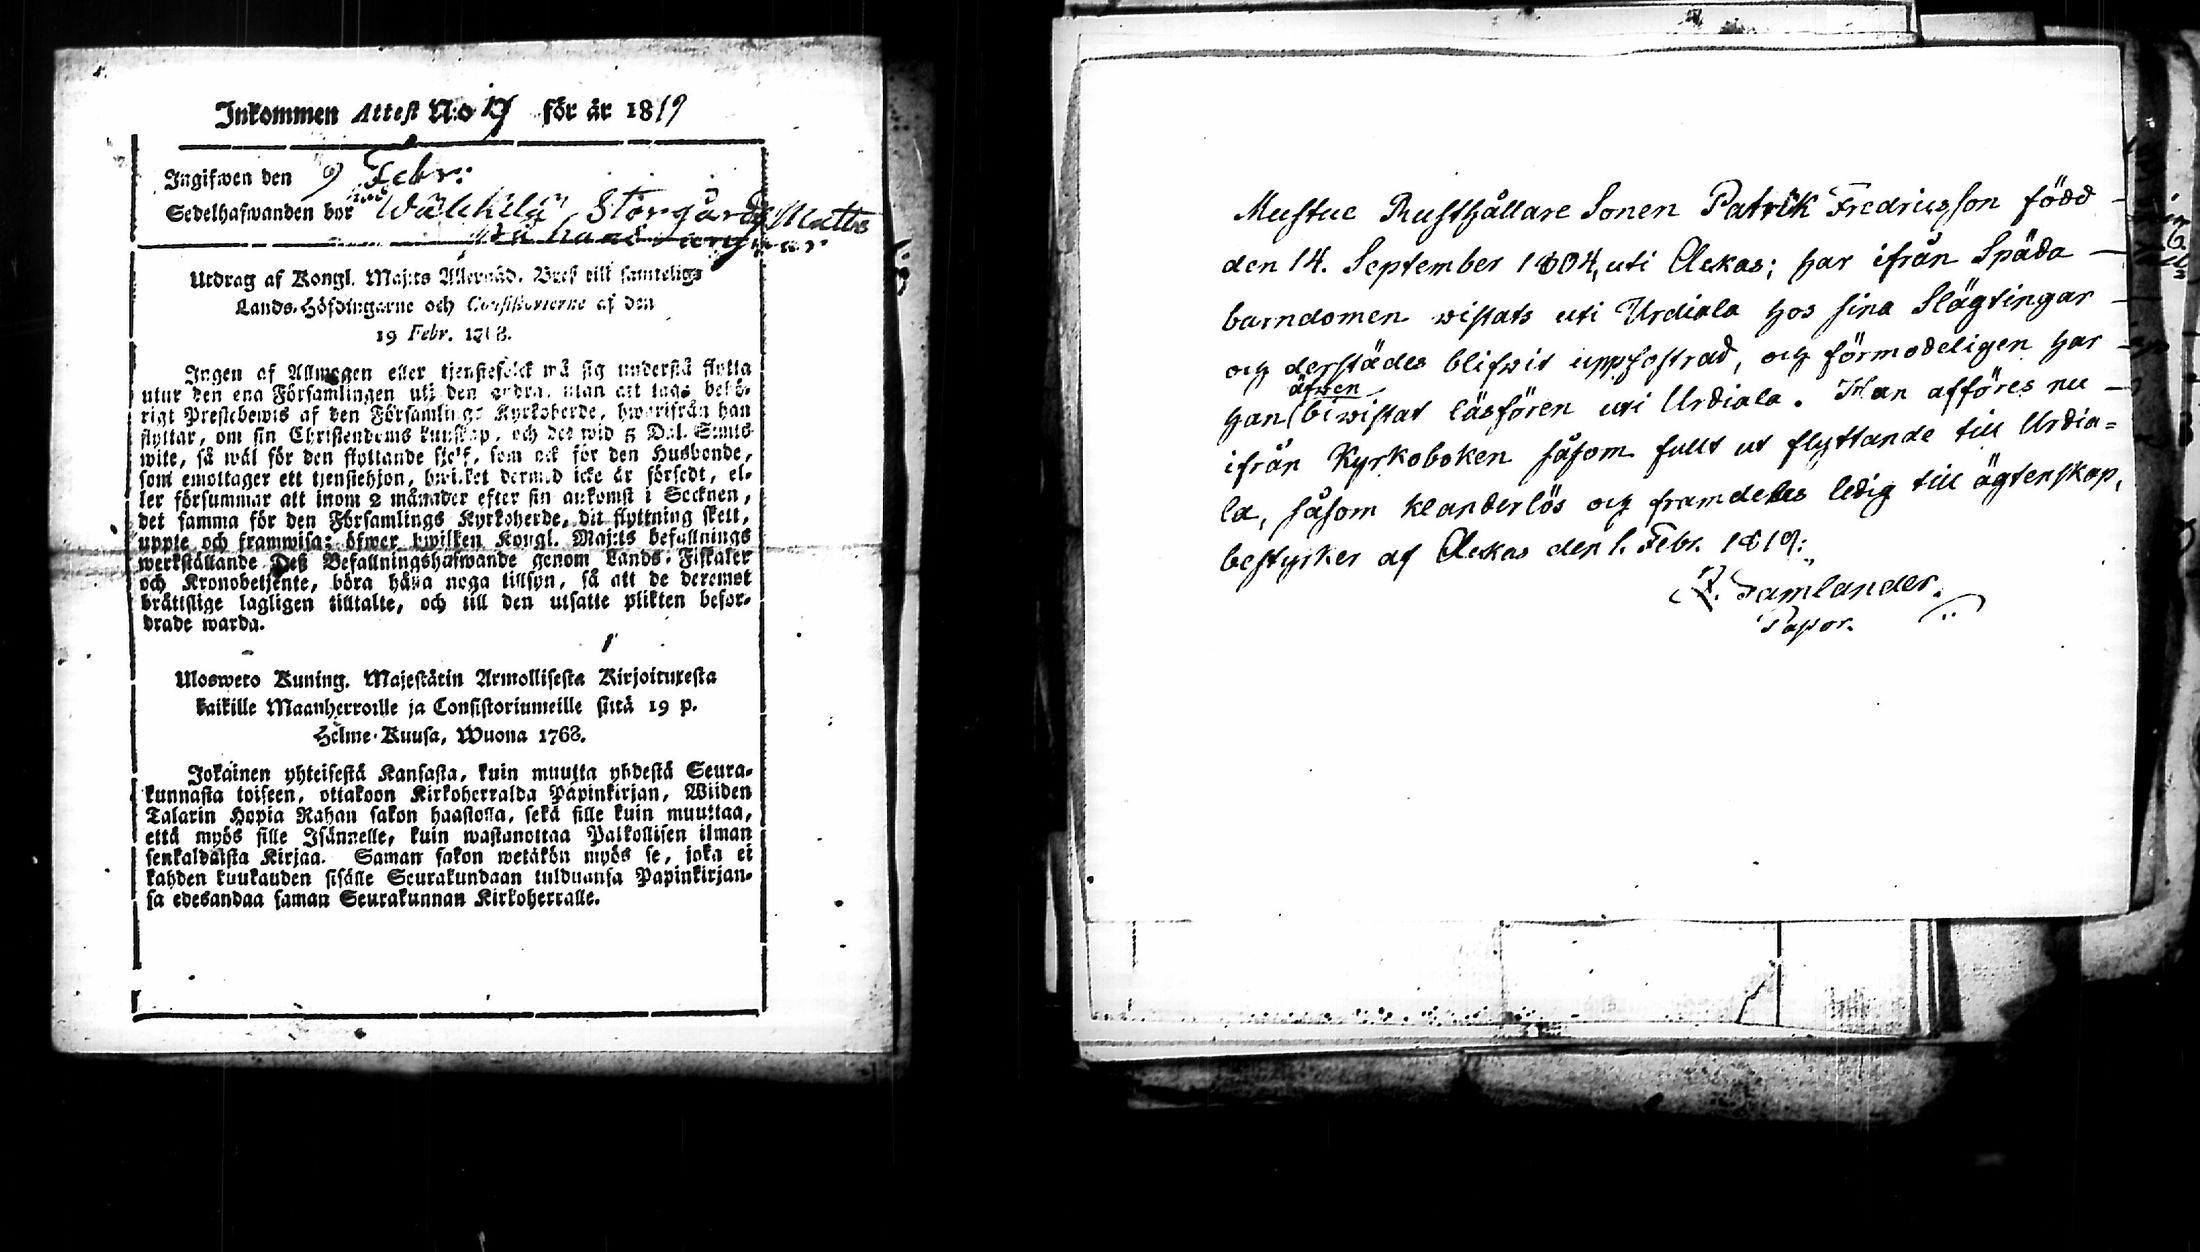 Inkommen Attest N:o 17 för år 1819
Ingifwen den 9 Febr:
Sedelhafwanden bor Wälkilä Storgårds Matts
Utdrag af Kongl. Maj:ts Allernåd. Bref till samtelige
Lands-Höfdingarne och Consistorierne af den
19 Febr. 1768.
Ingen af Allmogen eller tjenstefolck må sig understå flytta
utur den ena Församlingen uti den andra, utan att taga behö-
rigt Prestebewis af den Församlings Kyrkoherde, hwarifrån han
flyttar, om sin Christendoms kunskap, och det wid 5 Dal. S:mts
wite, så wäl för den flyttande sjelf, som ock för den Husbonde,
som emottager ett tjenstehjon, hwilket dermed icke är försedt, el-
ler försummar att inom 2 månader efter sin ankomst i Socknen,
det samma för den Församlings Kyrkoherde, dit flyttning skett,
uppte och framwisa; öfwer hwilken Kongl. Maj:ts befallnings
werkställande Deß Befallningshafwande genom Lands-Fiskaler
och Kronobetjente, böra hålla noga tillsyn, så att de deremot
brättslige lagligen tilltalte, och till den utsatte plikten befor-
drade warda.
Ulosweto Kuning. Majestätin Armollisesta Kirjoituxesta
kaikille Maanherroille ja Consistoriumeille siitä 19 p.
Helme-Kuusa, Wuona 1768.
Jokainen yhteisestä Kansasta, kuin muutta yhdestä Seura-
kunnasta toiseen, ottakoon Kirkoherralda Papinkirjan, Wiiden
Talarin Hopia Rahan sakon haastolla, sekä sille kuin muuttaa,
että myös sille Isännelle, kuin wastanottaa Palkollisen ilman
senkaldaista Kirjaa. Saman sakon wetäkön myös se, joka ei
kahden kuukauden sisälle Seurakundaan tulduansa Papinkirjan-
sa edesandaa saman Seurakunnan Kirkoherralle.
Mustue Rusthållare Sonen Patrik Fredricsson född
den 14. September 1804, uti Ackas; har ifrån Späda
barndomen wistats uti Urdiala hos sina Slägtingar
och derstädes blifwit uppfostrad, och förmodeligen har
han äfwen biwistat läsfören uti Urdiala. Han afföres nu
ifrån Kyrkoboken såsom fullt ut flyttande till Urdia=
la, såsom klanderlös och framdeles ledig till ägtenskap,
bestyrker af Ackas den 1. Febr. 1819:
Gamlander.
Pastor.